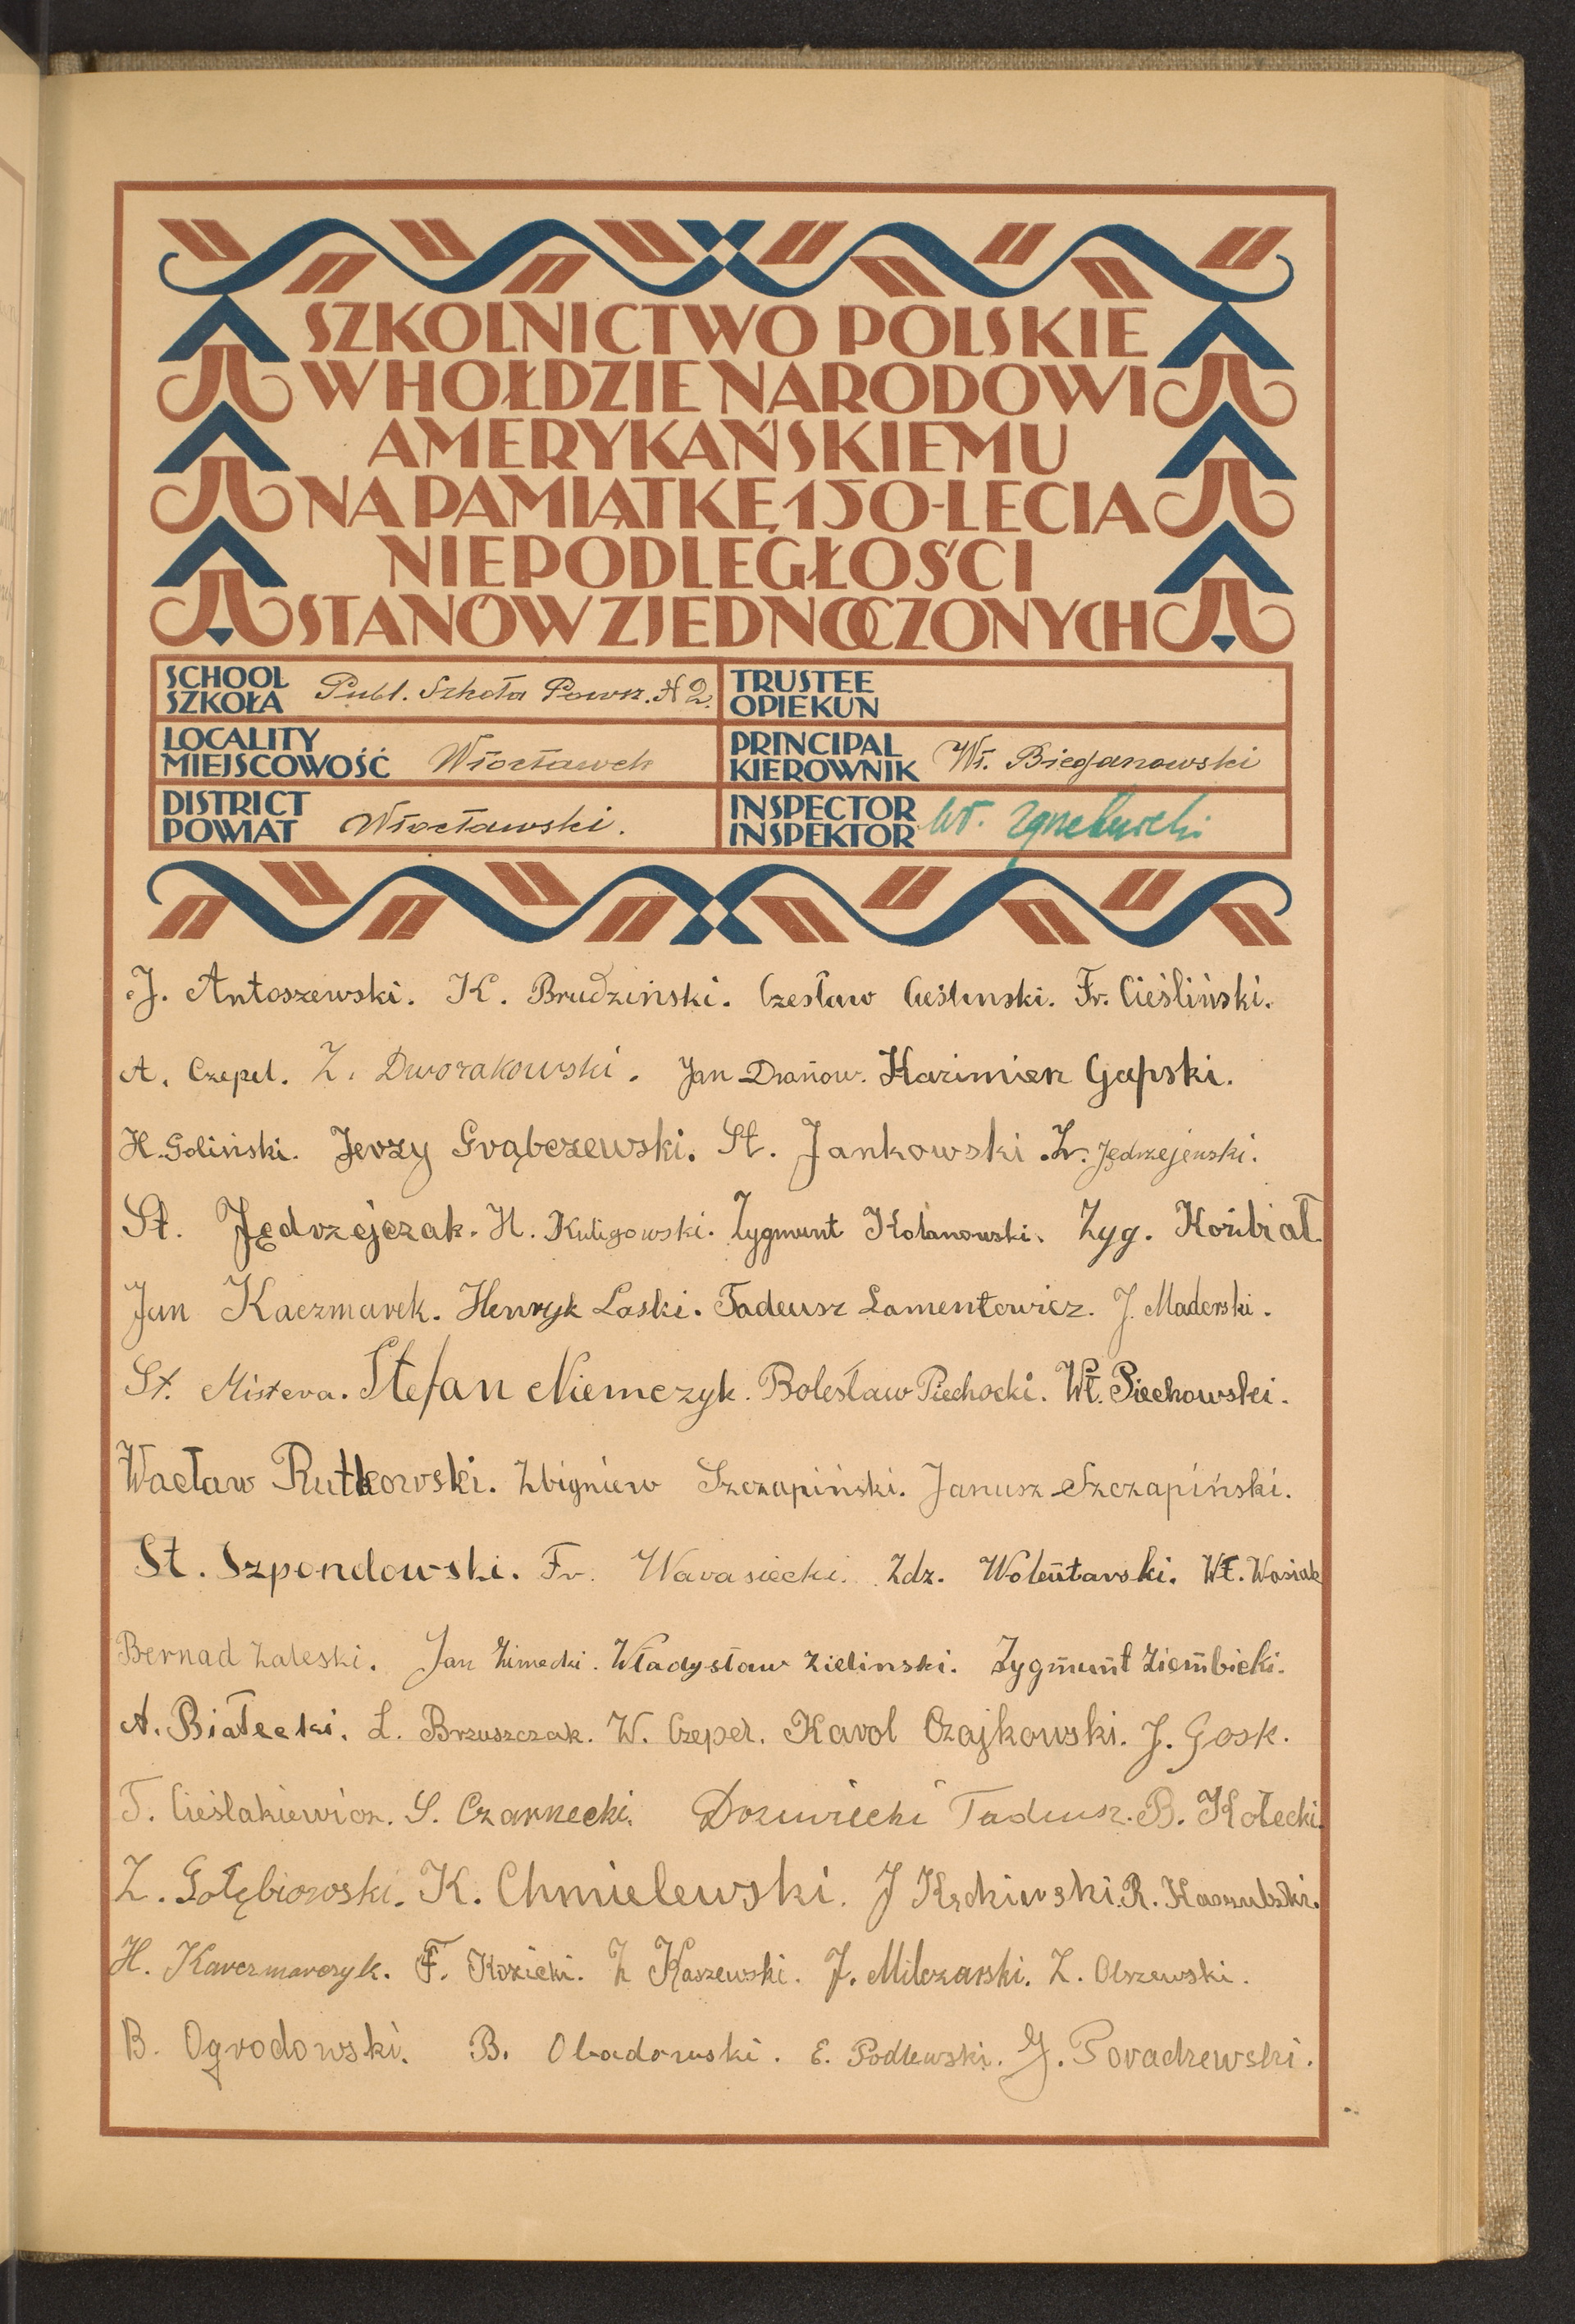 SZKOLNICTWO POLSKIE
W HOŁDZIE NARODOWI
AMERYKAŃSKIEMU
NA PAMIĄTKĘ 150-LECIA
NIEPODLEGŁOŚCI
STANÓW ZJEDNOCZONYCH
SCHOOL
SZKOŁA Publ. Szkoła Powsz. N 2.
TRUSTEE
OPIEKUN
LOCALITY
MIEJSCOWOŚĆ Włocławek
PRINCIPAL
KIEROWNIK Wł. Bieganowski
DISTRICT
POWIAT Włocławski.
INSPECTOR
INSPEKTOR Wł.
J. Antoszewski. K. Brudziński. Czesław Cieślinski. Fr. Cieśliński.
A. Czepel. Z. Dworakowski. Jan Kazimierz Gapski.
H. Goliński. Jerzy Grąbczewski. St. Jankowski. Jędrzejewski.
St. Jędrzejczak. H. Kuligowski. Zygmunt Kolanowski. Zyg. Koźbiał
Jan Kaczmarek. Henryk Laski. Tadeusz Lamentowicz. J. Maderski.
St. Mistera. Stefan Niemczyk. Bolesław Piechocki. Wł. Piechowski.
Wacław Rutkowski. Zbigniew Szczapiński. Janusz Szczapiński.
St. Szpondowski. Fr. Warasiecki. Zdz. Woleńtarski. Wł. Wasiak
Bernad Zaleski. Jan Zimecki. Władysław Zielinski. Zygmunt Ziembicki.
A. Białecki. L. Brzuszczak. W. Czepel. Karol Czajkowski. J. Gosk.
T. Cieślakiewicz. S. Czarnecki. Tadeusz. B. Kołecki.
Z. Gołębiowski. K. Chmielewski. J R. Kaszubski.
H. F. Kozicki. Z Kaszewski. J. Milczarski. Z. Olszewski.
B. Ogrodowski. B. Obadowski. E. Podlewski. J. Poradzewski.